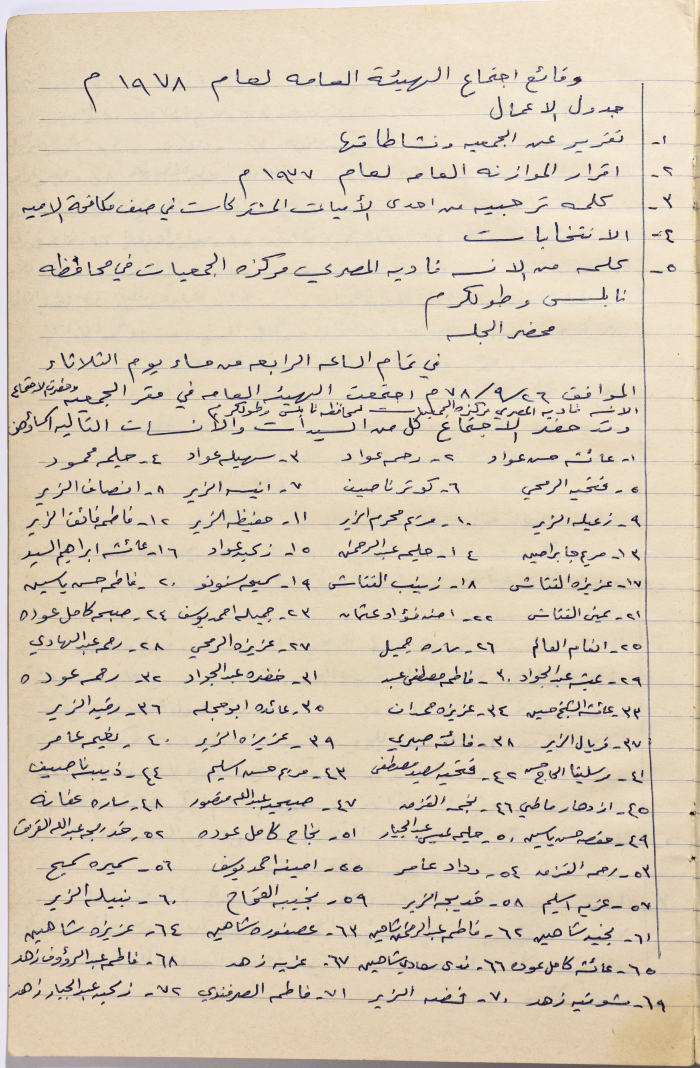 وقائع اجتماع الهيئة العامه لعام ١٩٧٨ م
جدول الاعمال
١- تقرير عن الجمعيه ونشاطاتها
٢- اقرار الموازنه العامه لعام ١٩٧٧ م
٣- كلمه ترحيبيه من احدى الأميات المشتركات في صف مكافحة الاميه
٤- الانتخابات
٥- كلمه من الانسه فاديه المصري مركزه الجمعيات في محافظه
نابلس وطولكرم
محضر الجلسه
في تمام الساعه الرابعه من مساء يوم الثلاثاء
الموافق ٢٦/٩/٧٨ م اجتمعت الهيئه العامه في مقر الجمعيه وحضرت الاجتماع
الانسه فاديه المصري مركزه الجمعيات لمحافظه نابلس وطولكرم
وقد حضر الاجتماع كل من السيدات والأنسات التاليه اسماؤهن
١- عائشه حسن عواد ٢- رحمه عواد ٣- سهيله عواد ٤- حليمه محمود
٥- فتحيه الرمحي ٦- كوثر ناصيف ٧- انيسه الزير ٨- انصاف الزير
٩- زعيله الزير ١٠- مريم محرم الزير ١١- حفيظه الزير ١٢- فاطمه فائق الزير
١٣- مريم جابر ١٤- حليمه عبد الرحمن ١٥- زكيه عواد ١٦- عائشه ابراهيم السيد
١٧- عزيزه النتاشى ١٨- زينب النتاشى ١٩- سميحه سنونو ٢٠- فاطمه حسن ياسين
٢١- يمنى النتاشى ٢٢- امنه فؤاد عثمان ٢٣- جميله احمد يوسف ٢٤- صبحه كامل عوده
٢٥- انعام الغانم ٢٦- ساره جميل ٢٧- عزيزه الرمحي ٢٨- رحمه عبد الهادي
٢٩- عيشه عبد الجواد ٣٠- فاطمه مصطفى عبد ٣١- خضره عبد الجواد ٣٢- رحمه عوده
٣٣- عائشه الشيخ حسين ٣٤- عزيزه حمدان ٣٥- عائده ابو عجله ٣٦- رقيه الزير
٣٧- فريال الزير ٣٨- فائقه صبري ٣٩- عزيزه الزير ٤٠- نظيمه عامر
٤١- رسليقا الحاج حسن ٤٢- فتحيه سعيد مصطفى ٤٣- مريم حسن اسليم ٤٤- ذيبه ناصيف
٤٥- ازدهار ماضي ٤٦- نجمه القزق ٤٧- صبحيه عبدالله منصور ٤٨- ساره عفانه
٤٩- حفصه حسن ياسين ٥٠- حليمه عيسى عبد الجبار ٥١- نجاح كامل عوده ٥٢- خديجه عبدالله القزق
٥٣- رحمه القزق ٥٤- وداد عامر ٥٥- امينه احمد يوسف ٥٦- سميره سميح
٥٧- عزيه اسليم ٥٨- خديجه الزير ٥٩- نجيبه القماح ٦٠- نبيله الزير
٦١- نجيه شاهين ٦٢- فاطمه عبد الرحمن شاهين ٦٣- عصفوره شاهين ٦٤- عزيزه شاهين
٦٥- عائشه كامل عوده ٦٦- ندى شاهين ٦٧- عزيه زهد ٦٨- فاطمه عبد الرؤوف زهد
٦٩- شوقيه زهد ٧٠- فضه الزير ٧١- فاطمه الصرفندي ٧٢- زكيه عبد الجبار زهد